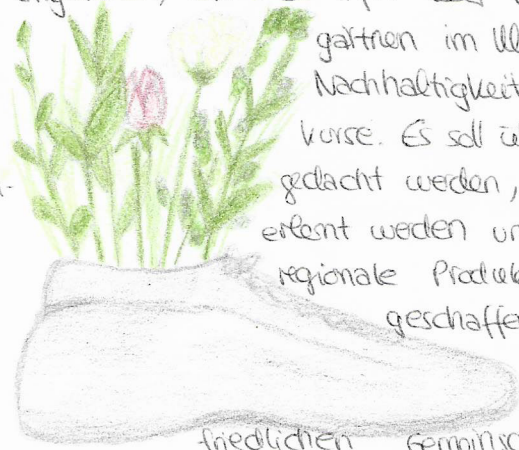 gärtnen im
Nachhaltigkeit
kurse. Es soll
gedacht werden,
erlernt werden
regionale Produk
geschaffe
friedlichen Gemeinsc